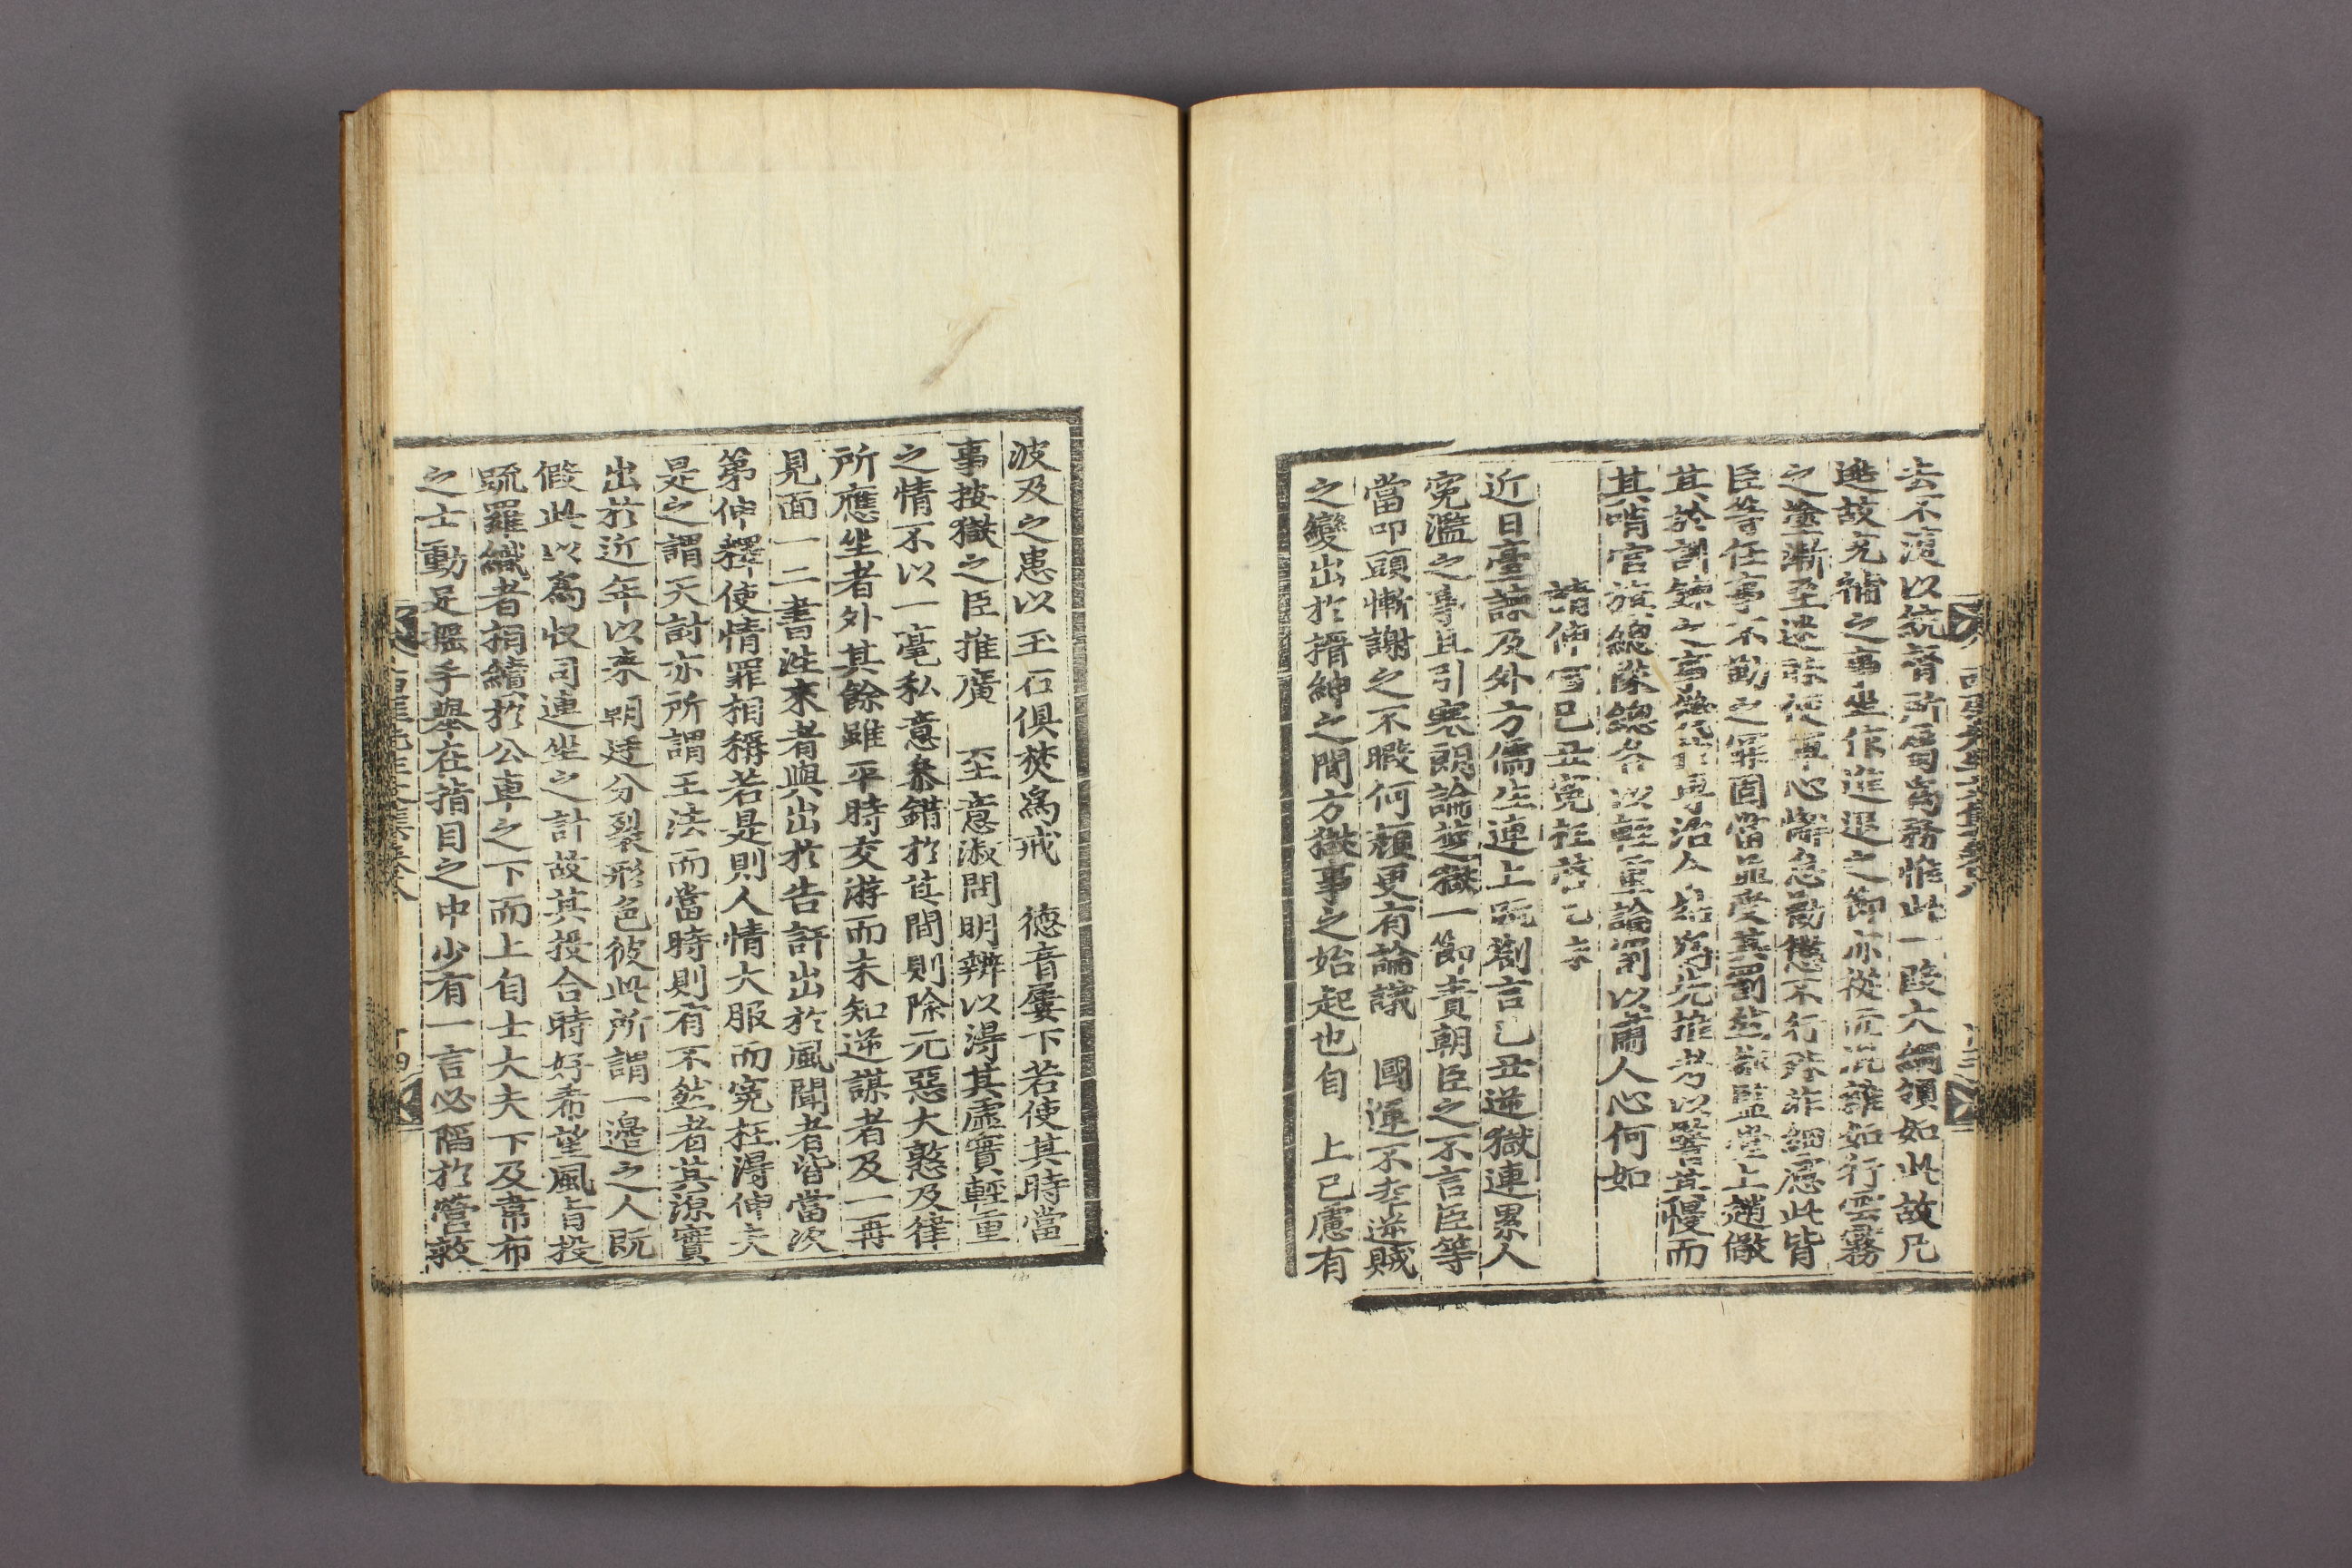 去不復以統脊所爲爲務惟此一段大綱領如此故凡
逃故充補之事坐作進退之節亦從而混雜如行雲霧
之塗漸至遲味使軍心解怠勸懲不行階非細慮此皆
臣等任事不勤之罪固當並受其罰然都監堂上趙儆
其於訓鍊之事無異專治人此宜先推考以警其慢而
其哨官旗總隊總各以輕重論罰以肅人心何如
請伸雪己丑冤枉啓乙未
近日臺諫及外方儒生連上疏劄言己丑逆獄連累人
冤濫之事且引寒朗論楚獄一節責朝臣之不言臣等
當叩頭慚謝之不暇何顔更有論議　國運不幸逆賊
之變出於搢紳之間方獄事之始起也自　上已慮有
西厓先生文集卷八
十三
波及之患以玉石俱焚爲戒　德音屢下若使其時當
事按獄之臣推廣　至意淑問明辨以得其虛實輕重
之情不以一毫私意參錯於其間則除元惡大憝及律
所應坐者外其餘雖平時交游而未知逆謀者及一再
見面一二書往來者與出於告訐出於風聞者皆當次
第伸釋使情罪相稱若是則人情大服而冤枉得伸夫
是之謂天討亦所謂王法而當時則有不然者其源實
出於近年以來朝廷分裂形色彼此所謂一邊之人既
假此以爲收司連坐之計故其投合時好希望風旨投
疏羅織者相續於公車之下而上自士大夫下及韋布
之士動足搖手擧在指目之中少有一言必陷於營救
西厓先生文集卷八
十四